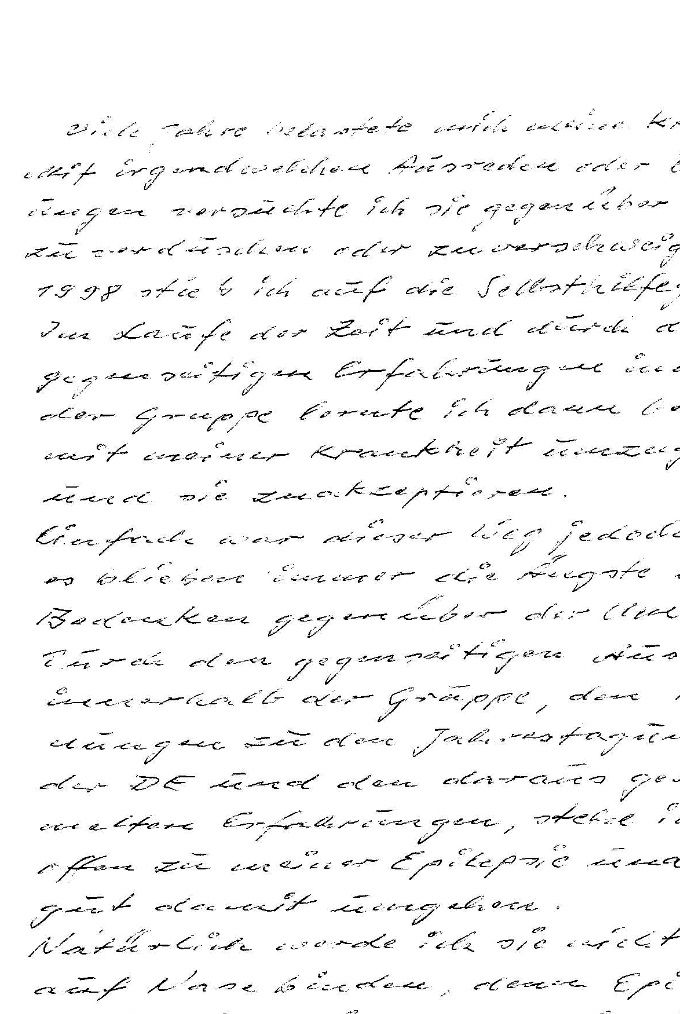 Viele Jahre belastete mich meine Kr
Mit irgendwelchen Ausreden oder
ungen versuchte ich sie gegenüber
zu verduschen oder zuverschweig
1998 stieß ich auf die Selbsthilfeg
Im Laufe der Zeit und durch d
gegenseitigen Erfahrungen in
der Gruppe lernte ich dann be
mit meiner Krankheit umzug
und sie zuakzeptieren.
Einfach war dieser Weg jedoch
es blieben immer die Ängste
Bedenken gegenüber der Um
Durch den gegenseitigen Aus
innerhalb der Gruppe, den
nungen zu den Jahrestagun
der DE und den daraus ges
melten Erfahrungen, stehe i
offen zu meiner Epilepsie und
gut damit umgehen.
Natürlich werde ich sie nicht
auf Nase binden, denn Epi